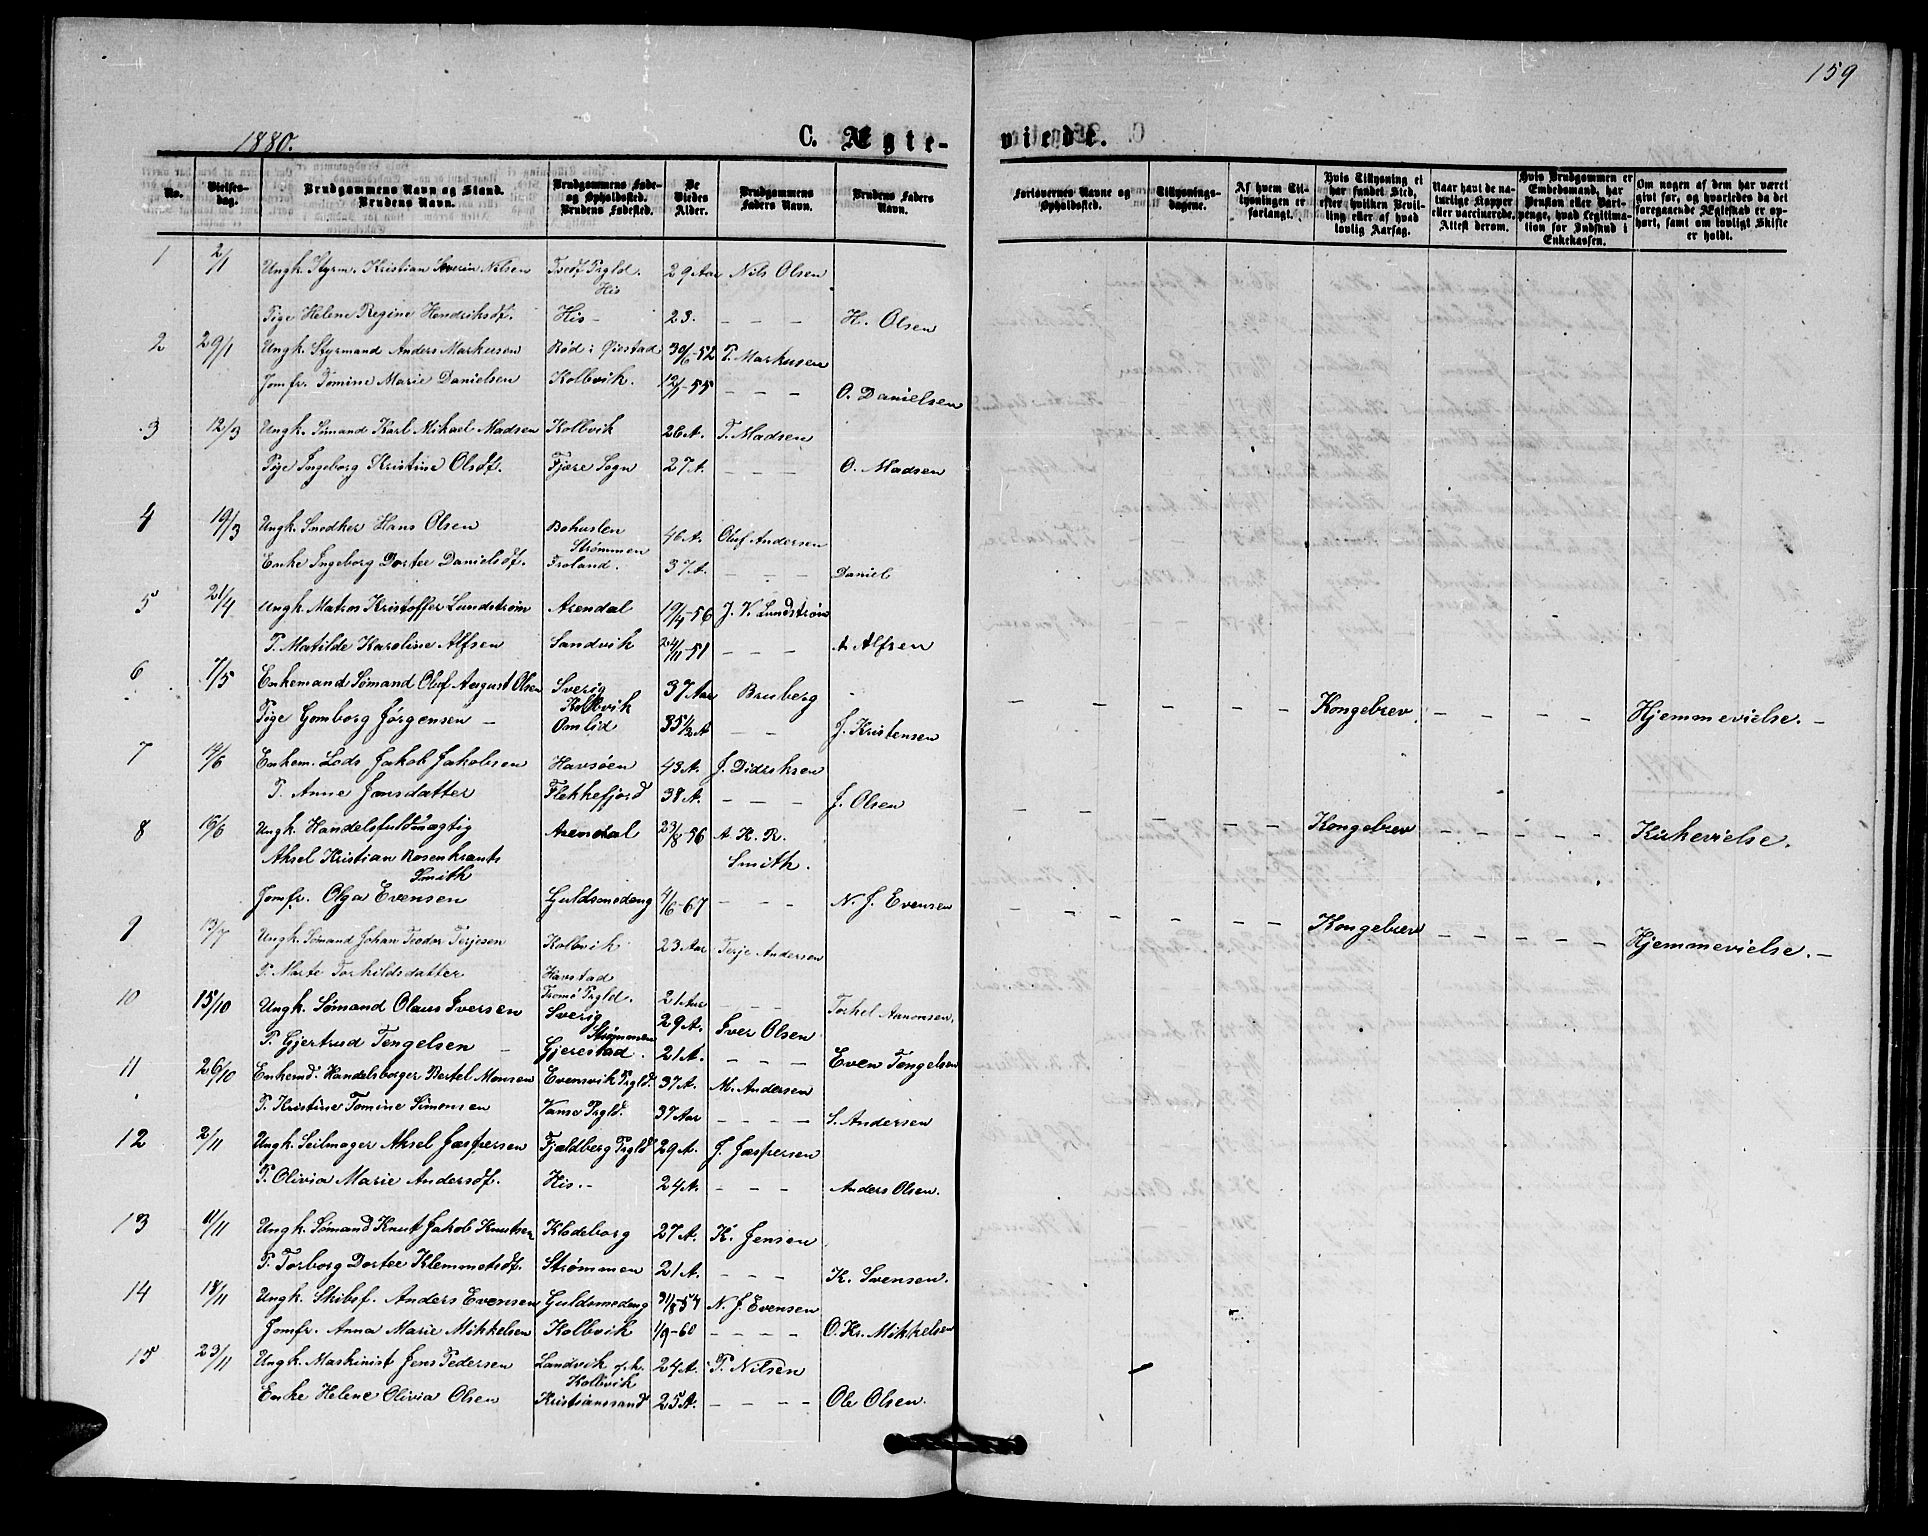 159
1880.
C. Ægte-
viede.
No.
Vielses-
dag.
Brudgommens Navn og Stand.
Brudens Navn.
Brudgommens Føde-
og Opholdssted.
Brudens Fødested.
De
Viedes
Alder.
Brudgommens
Faders Navn.
Brudens Faders
Navn.
Forlovernes Navne og
Opholdssted.
Tillysnings-
dagene.
Af hvem Til-
lysningen er
forlangt.
Hvis Tillysning ei
har fundet Sted,
efter hvilken Bevil-
ling eller af hvad
lovlig Aarsag.
Naar havt de na-
turlige Kopper
eller vaccinerede.
Attest derom.
Hvis Brudgommen er
Embedsmand, har
Pension eller Vart-
penge, hvad Legitima-
tion for Indskud i
Enkekassen.
Om nogen af dem har været
gift før, og hvorledes da det
foregaaende Ægteskab er op-
hørt, samt om lovligt Skifte
er holdt.
1 2/1 Ungk. Styrm. Kristian Severin Nilsen Tvedt Prgld. 29 Aar Nils Olsen
His
Pige Helene Regine Hendriksdt. His - 23. - - - H. Olsen
2 29/1 Ungk. Styrmand Anders Markusen Rød i Øiestad 30/6-52 T. Markusen
Jomfr. Tomine Marie Danielsen Kolbvik. 12/1-55 - - - O. Danielsen
3 12/3 Ungk. Sømand Karl Mikael Madsen Kolbvik 26 A. T. Madsen
Pige Ingeborg Kristine Olsdt. Fjære Sogn 27 A. - - - O. Madsen
4 19/3 Ungk. Snedker Hans Olsen Bohuslen 46 A. Oluf Andersen
Strømmen
Enke Ingeborg Dortee Danielsdt. Froland. 37 A. - - - Daniel
5 21/4 Ungk. Matros Kristoffer Lundstrøm Arendal 19/4-56 J. V. Lundstrøm
P. Matilde Karoline Alfsen Sandvik 24/11-51 - - - A. Alfsen
6 7/5 Enkemand Sømand Oluf August Olsen Sverig 37 Aar Bruberg
Kolbvik
Pige Gomborg Jørgensen - Omlid 35 1/2 A - - J. Kristensen - - - - Kongebrev. - - - Hjemmevielse. -
7 14/6 Enkem. Lods Jakob Jakobsen Havsøen 43 A. J. Didriksen
P. Anne Jansdatter Flekkefjord 38 A. - - - J. Olsen - - - - - Kongebrev - - - - - Kirkevielse.
8 16/6 Ungk. Handelsfuldmægtig Arendal 23/8-56 A. K. R.
Aksel Kristian Rosenkrants Smith.
Smith
Jomfr. Olga Evensen Guldsmedeng 4/6-67 - - - N. J. Evensen - - - - - - Kongebrev - - - - - Hjemmevielse. -
9 13/7 Ungk. Sømand Johan Teodor Terjesen Kolbvik 23 Aar Terje Andersen
P. Marte Torkildsdatter Havstad
Tromø Prgld. 21 Aar - - - Torkel Aanonsen.
10 15/10 Ungk. Sømand Olaus Iversen Sverig 29 A. Iver Olsen
Strømmen
P. Gjertrud Tengelsen - Gjerestad. 21 A. - - - Even Tengelsen
11 26/10 Enkemd. Handelsborger Bertel Monsen Evensvik Prgld. 37 A. M. Andersen
P. Kristine Tomine Simonsen Vanse Prgld. 37 Aar - - - - S. Andersen
12 2/11 Ungk. Seilmager Aksel Jaspersen Fjældberg Prgld 29 A. J. Jaspersen
P. Olivia Marie Andersdt. His. - 24 A. - - - Anders Olsen.
13 11/11 Ungk. Sømand Knut Jakob Knutsen Klodeborg 27 A. K. Jensen
P. Torborg Dortee Klemmetsdt. Strømmen 21 A. - - - K. Svensen.
14 18/11 Ungk. Skibsf. Anders Evensen Guldsmedeng 31/8-54 N. J. Evensen
Jomfr. Anna Marie Mikkelsen Kolbvik 1/9-60 - - - - O. Kr. Mikkelsen
15 23/11 Ungk. Maskinist Jens Pedersen Landvik o.h. 24 A. P. Nilsen
Kolbvik
Enke Helene Olivia Olsen Kristianssand 25 A. - - - - Ole Olsen.